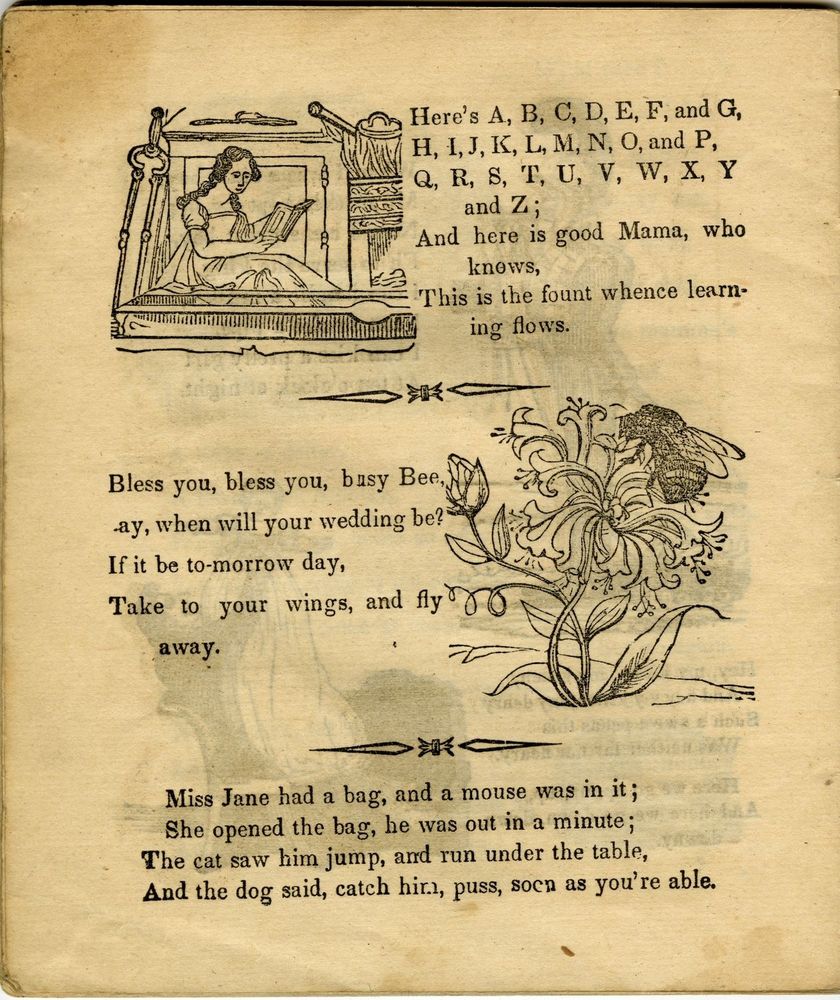 Here's A, B, C, D, E, F, and G,
H, I, J, K, L, M, N, O, and P,
Q, R, S, T, U, V, W, X, Y
and Z;
And here is good Mama, who
knows,
This is the fount whence learn-
ing flows.
Bless you, bless you, busy Bee,
ay, when will your wedding be?
If it be to-morrow day,
Take to your wings, and fly
away.
Miss Jane had a bag, and a mouse was in it;
She opened the bag, he was out in a minute;
The cat saw him jump, and run under the table,
And the dog said, catch him, puss, soon as you're able.